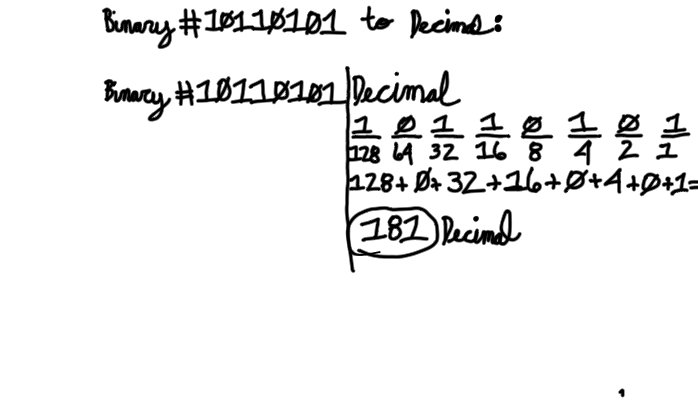 Binary #10110101 to Decimal:
Binary #10110101 Decimal
1 0 1 1 0 1 0 1
128 64 32 16 8 4 2 1
128+0+32+16+0+4+0+1=
181 Decimal